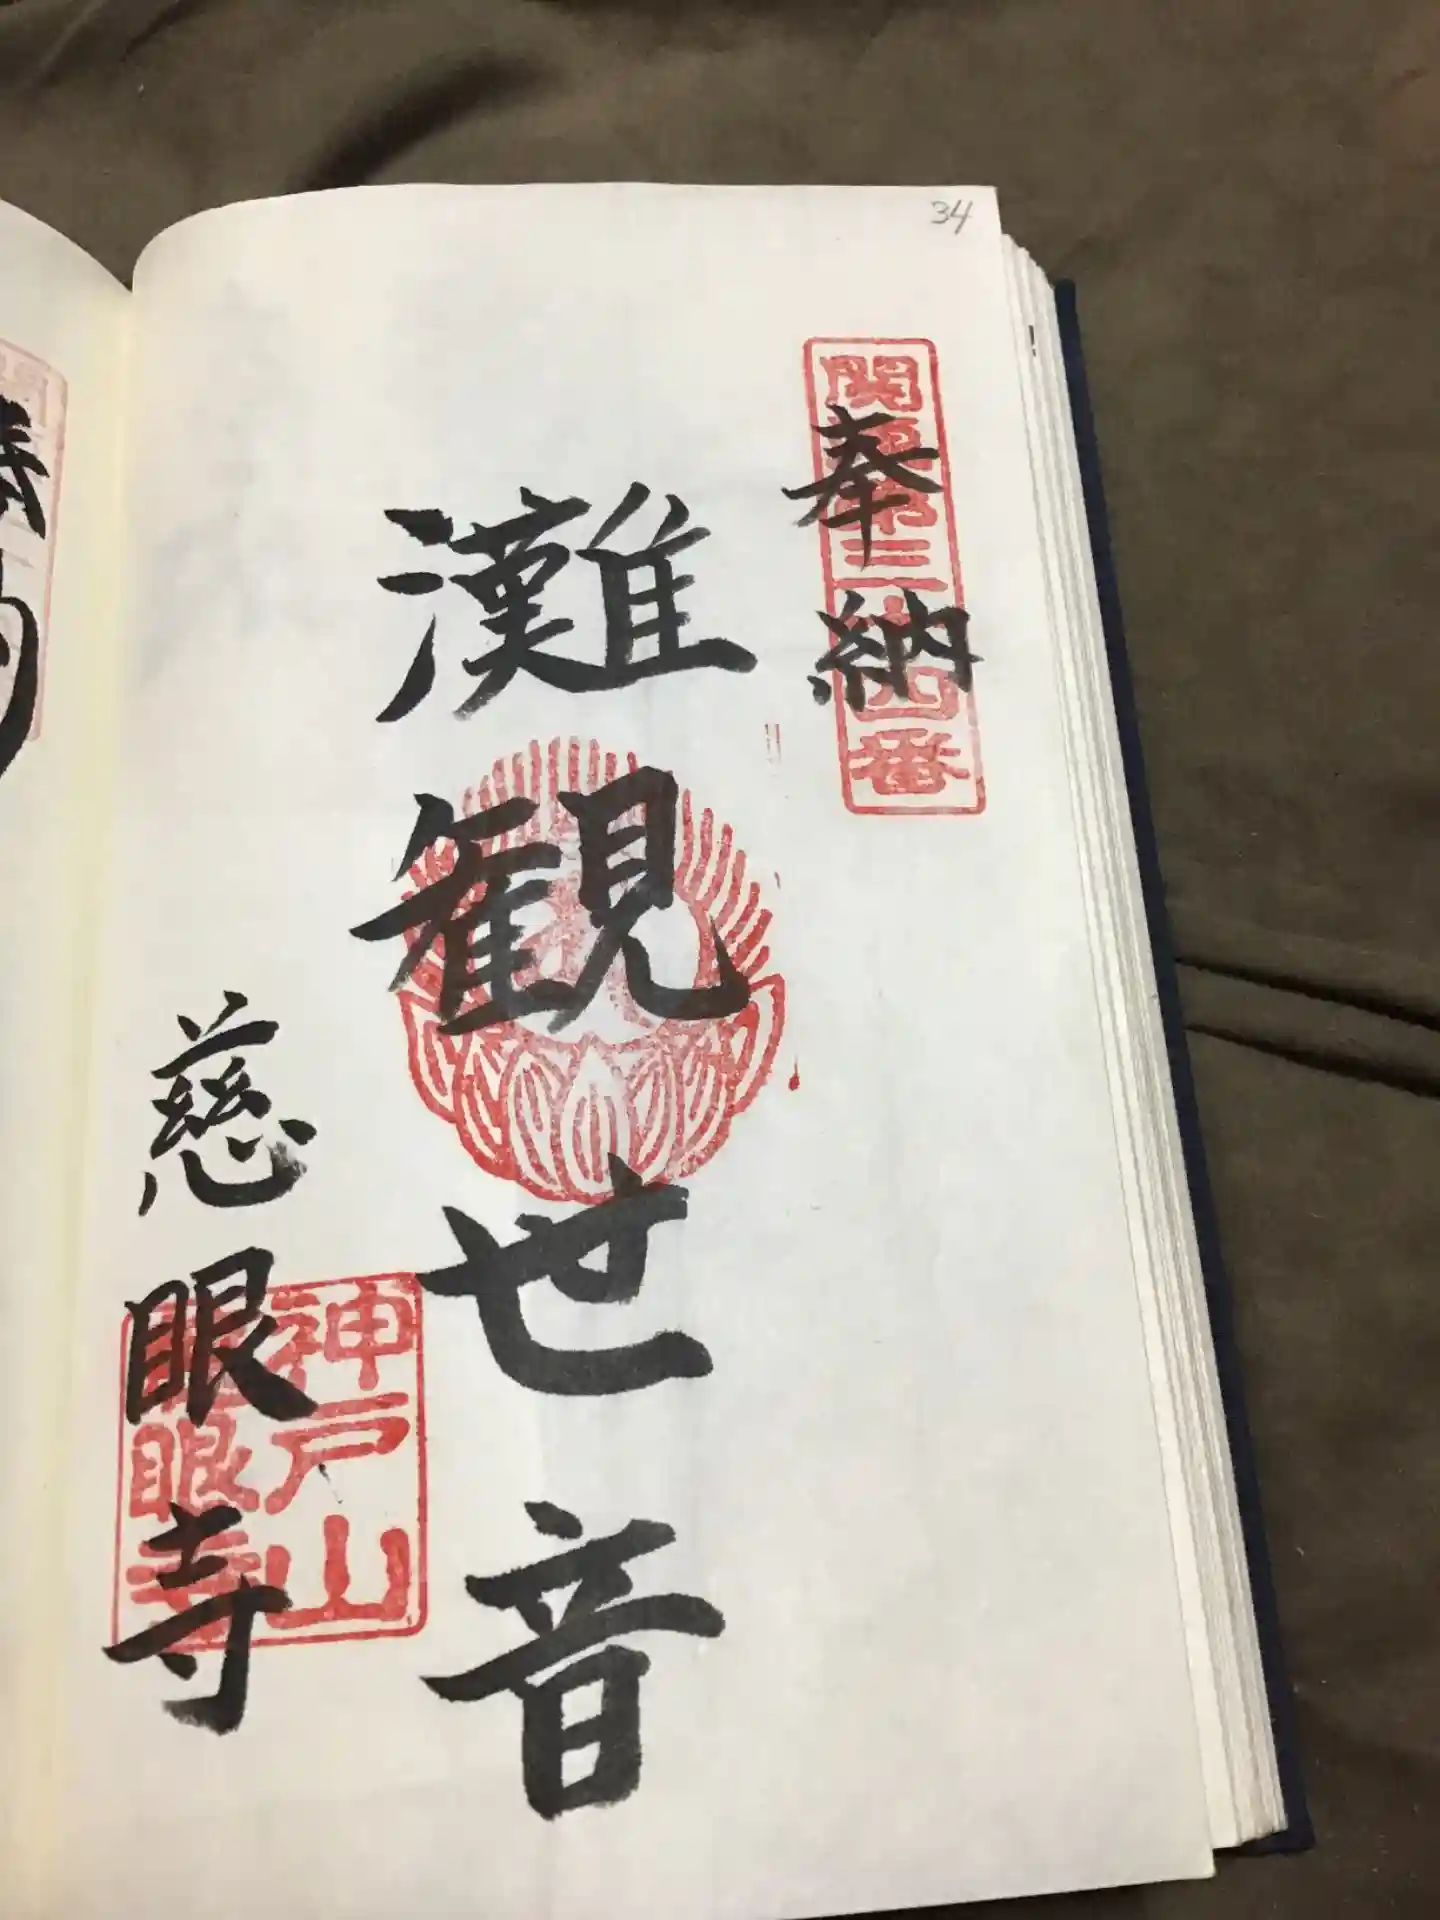 34
奉納
関東第三十四番
灘観世音
慈眼寺
神戸山
慈眼寺